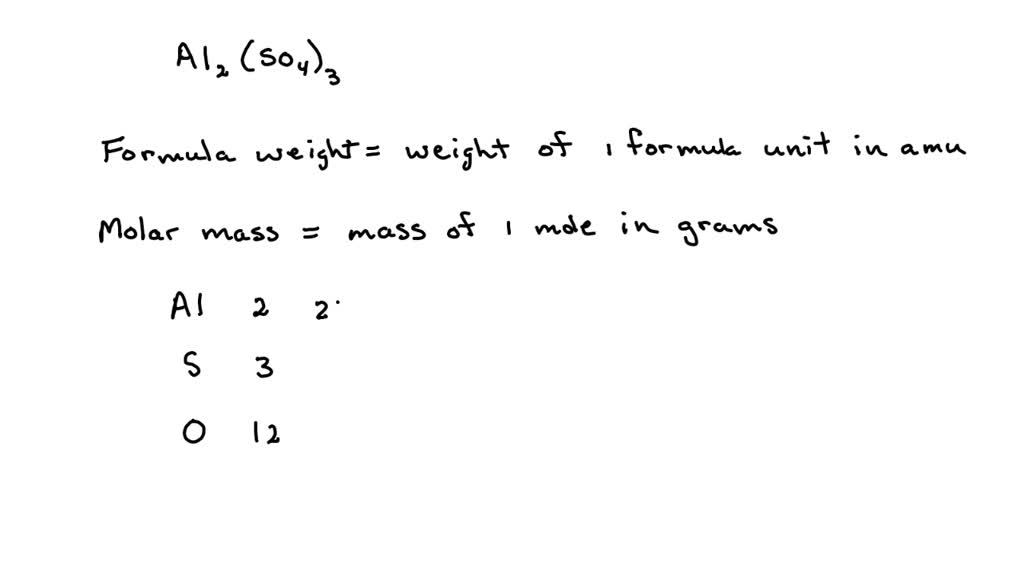 Al₂(SO₄)₃
Formula weight = weight of 1 formula unit in amu
Molar mass = mass of 1 mole in grams
Al 2 2.
S 3
O 12